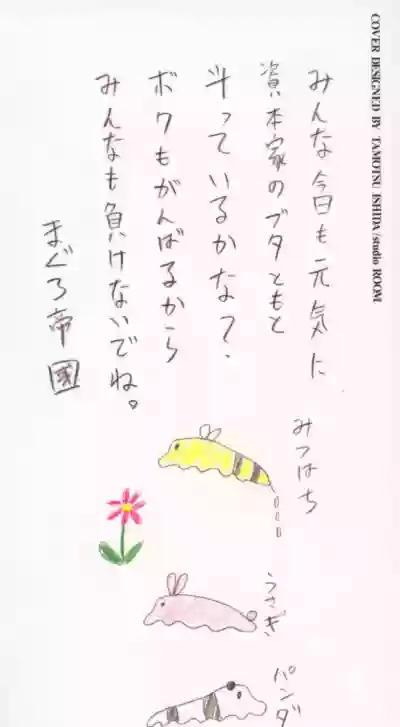 みんな今日も元気に
資本家のブタともと
斗っているかな?.
ボクもがんばるから
みんなも負けないでね。
まぐろ帝国
みつはち
うさぎ
パンダ
COVER DESIGNED BY TAMOTSU ISHIDA/studio ROOM